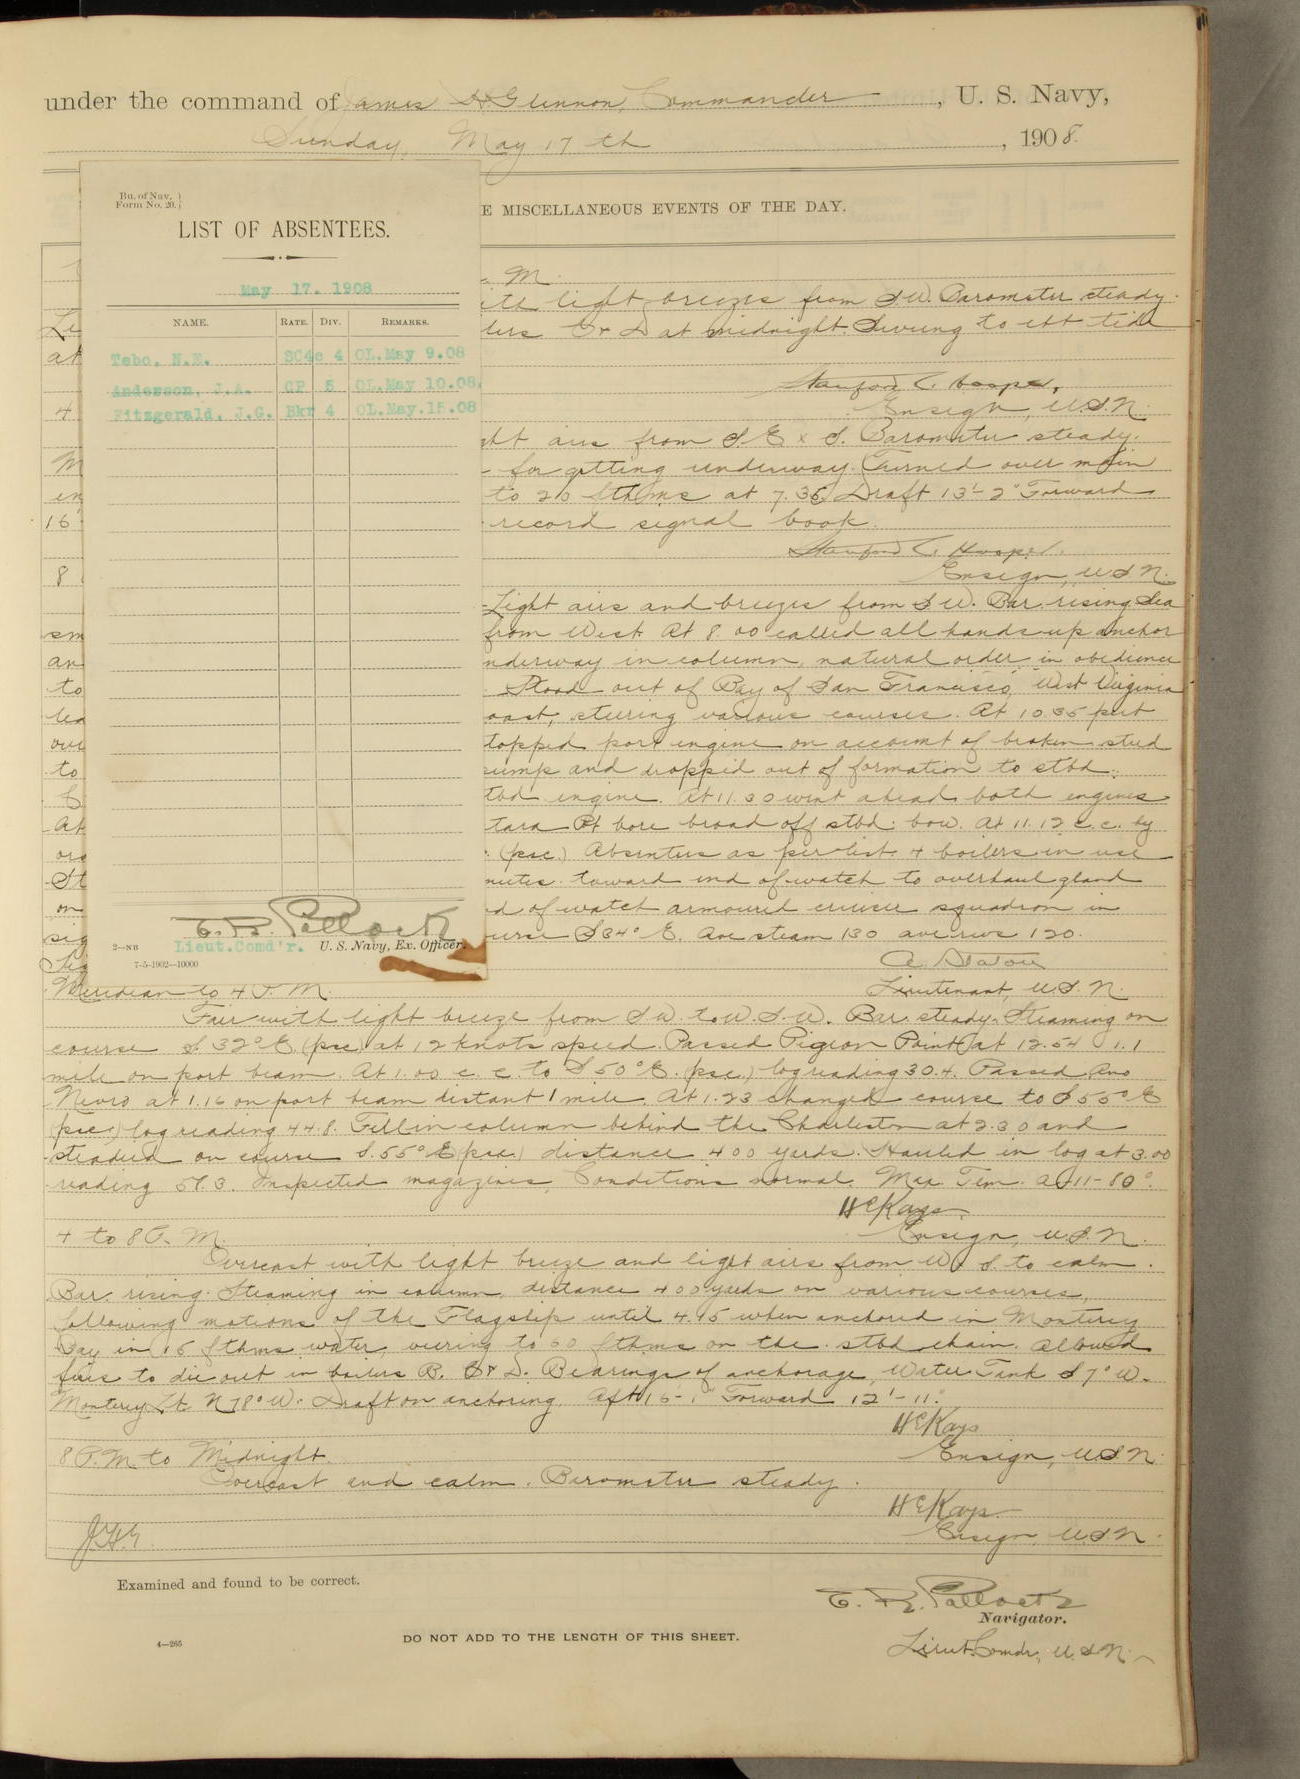 under the command of James H Glennon, Commander, U. S. Navy,
Sunday, May 17th, 1908.
E MISCELLANEOUS EVENTS OF THE DAY.
Bu. of Nav.
Form No. 20.
LIST OF ABSENTEES.
May 17. 1908
NAME. RATE. DIV. REMARKS.
Tebo, N.E. SC4c 4 OL.May 9.08
Anderson, J.A. CP 5 OL.May 10.08
Fitzgerald, J.G. Bkr 4 OL.May.15.08
C. R. Pollock
2—NB Lieut.Comd'r. U. S. Navy, Ex. Officer.
7-5-1902—10000
M
light breezes from S.W. Barometer steady.
at midnight. Swung to ebb tide
Stanford C. Hooper,
Ensign, U.S.N.
4
airs from S.E x S. Barometer steady.
M
for getting underway. Turned over main
en
to 20 fthms at 7.35. Draft 13'-2" Forward
16
record signal book.
Stanford C. Hooper.
Ensign, U.S.N.
8
Light airs and breezes from S.W. Bar. rising. Sea
sm
from West. At 8.00 called all hands up anchor
an
nderway in column, natural order in obedience
to
Stood out of Bay of San Francisco, West Virginia
oast, steering various courses. At 10.35 port
topped port engine on account of broken stud
to
and dropped out of formation to stbd.
tbd engine. At 11.30 went ahead both engines
At
Pt bore broad off stbd. bow. At 11.12 c.c. by
(psc.) Absentees as per list. 4 boilers in use
St
nutes toward end of watch to overhaul gland
on
nd of watch armoured cruiser squadron in
sig
ourse S34°E. Ave steam 130 ave revs 120.
Lieutenant, U.S.N.
Meridian to 4 P.M.
Fair with light breeze from S.W. to W.S.W. Bar. steady. Steaming on
course S.32°E (psc) at 12 knots speed. Passed Pigeon Point at 12.54 1.1
mile on port beam. At 1.00 c. c. to S50°E. (psc.) log reading 30.4. Passed Ano
Nuevo at 1.16 on port beam distant 1 mile. At 1.23 changed course to S55°E
(psc.) log reading 44.8. Fell in column behind the Charleston at 2.30 and
steadied on course S.55°E (psc.) distance 400 yards. Hauled in log at 3.00
reading 57.3. Inspected magazines, Conditions normal. Max Tem. A011-80°.
H E Kays
Ensign, U.S.N.
4 to 8 P.M.
Overcast with light breeze and light airs from W x S. to calm.
Bar. rising. Steaming in column, distance 400 yards on various courses,
following motions of the Flagship until 4.45 when anchored in Monterey
Bay in 15 fthms water veering to 60 fthms on the stbd chain. Allowed
fires to die out in boilers B. C & D. Bearings of anchorage, Water Tank S7°W.
Monterey Lt. N78°W. Draft on anchoring, Aft 15-1" Forward 12'-11"
H E Kays
Ensign, U.S.N.
8 P.M. to Midnight.
Overcast and calm. Barometer steady.
H E Kays
Ensign U.S.N.
J.H.G.
Examined and found to be correct.
C. R. Pollock
Navigator.
4—265
DO NOT ADD TO THE LENGTH OF THIS SHEET.
Lieut. Comdr, U.S.N.